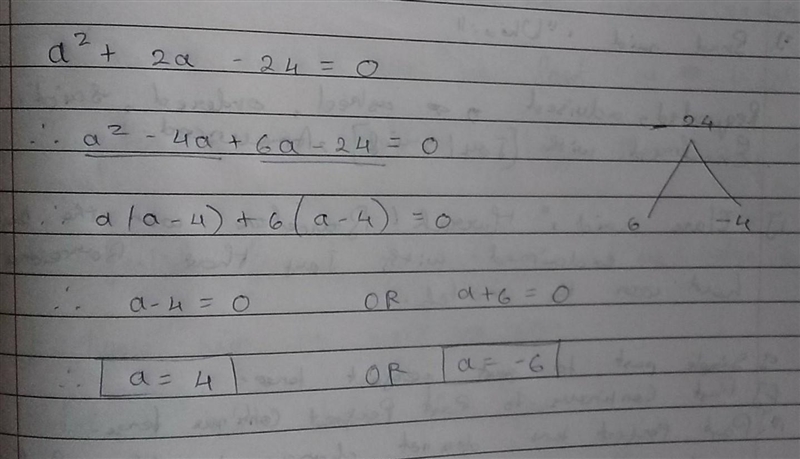 a² + 2a - 24 = 0
∴ a² - 4a + 6a - 24 = 0
- 24
6 -4
∴ a(a-4) + 6(a-4) = 0
∴ a-4 = 0 OR a+6 = 0
∴ a = 4 OR a = -6